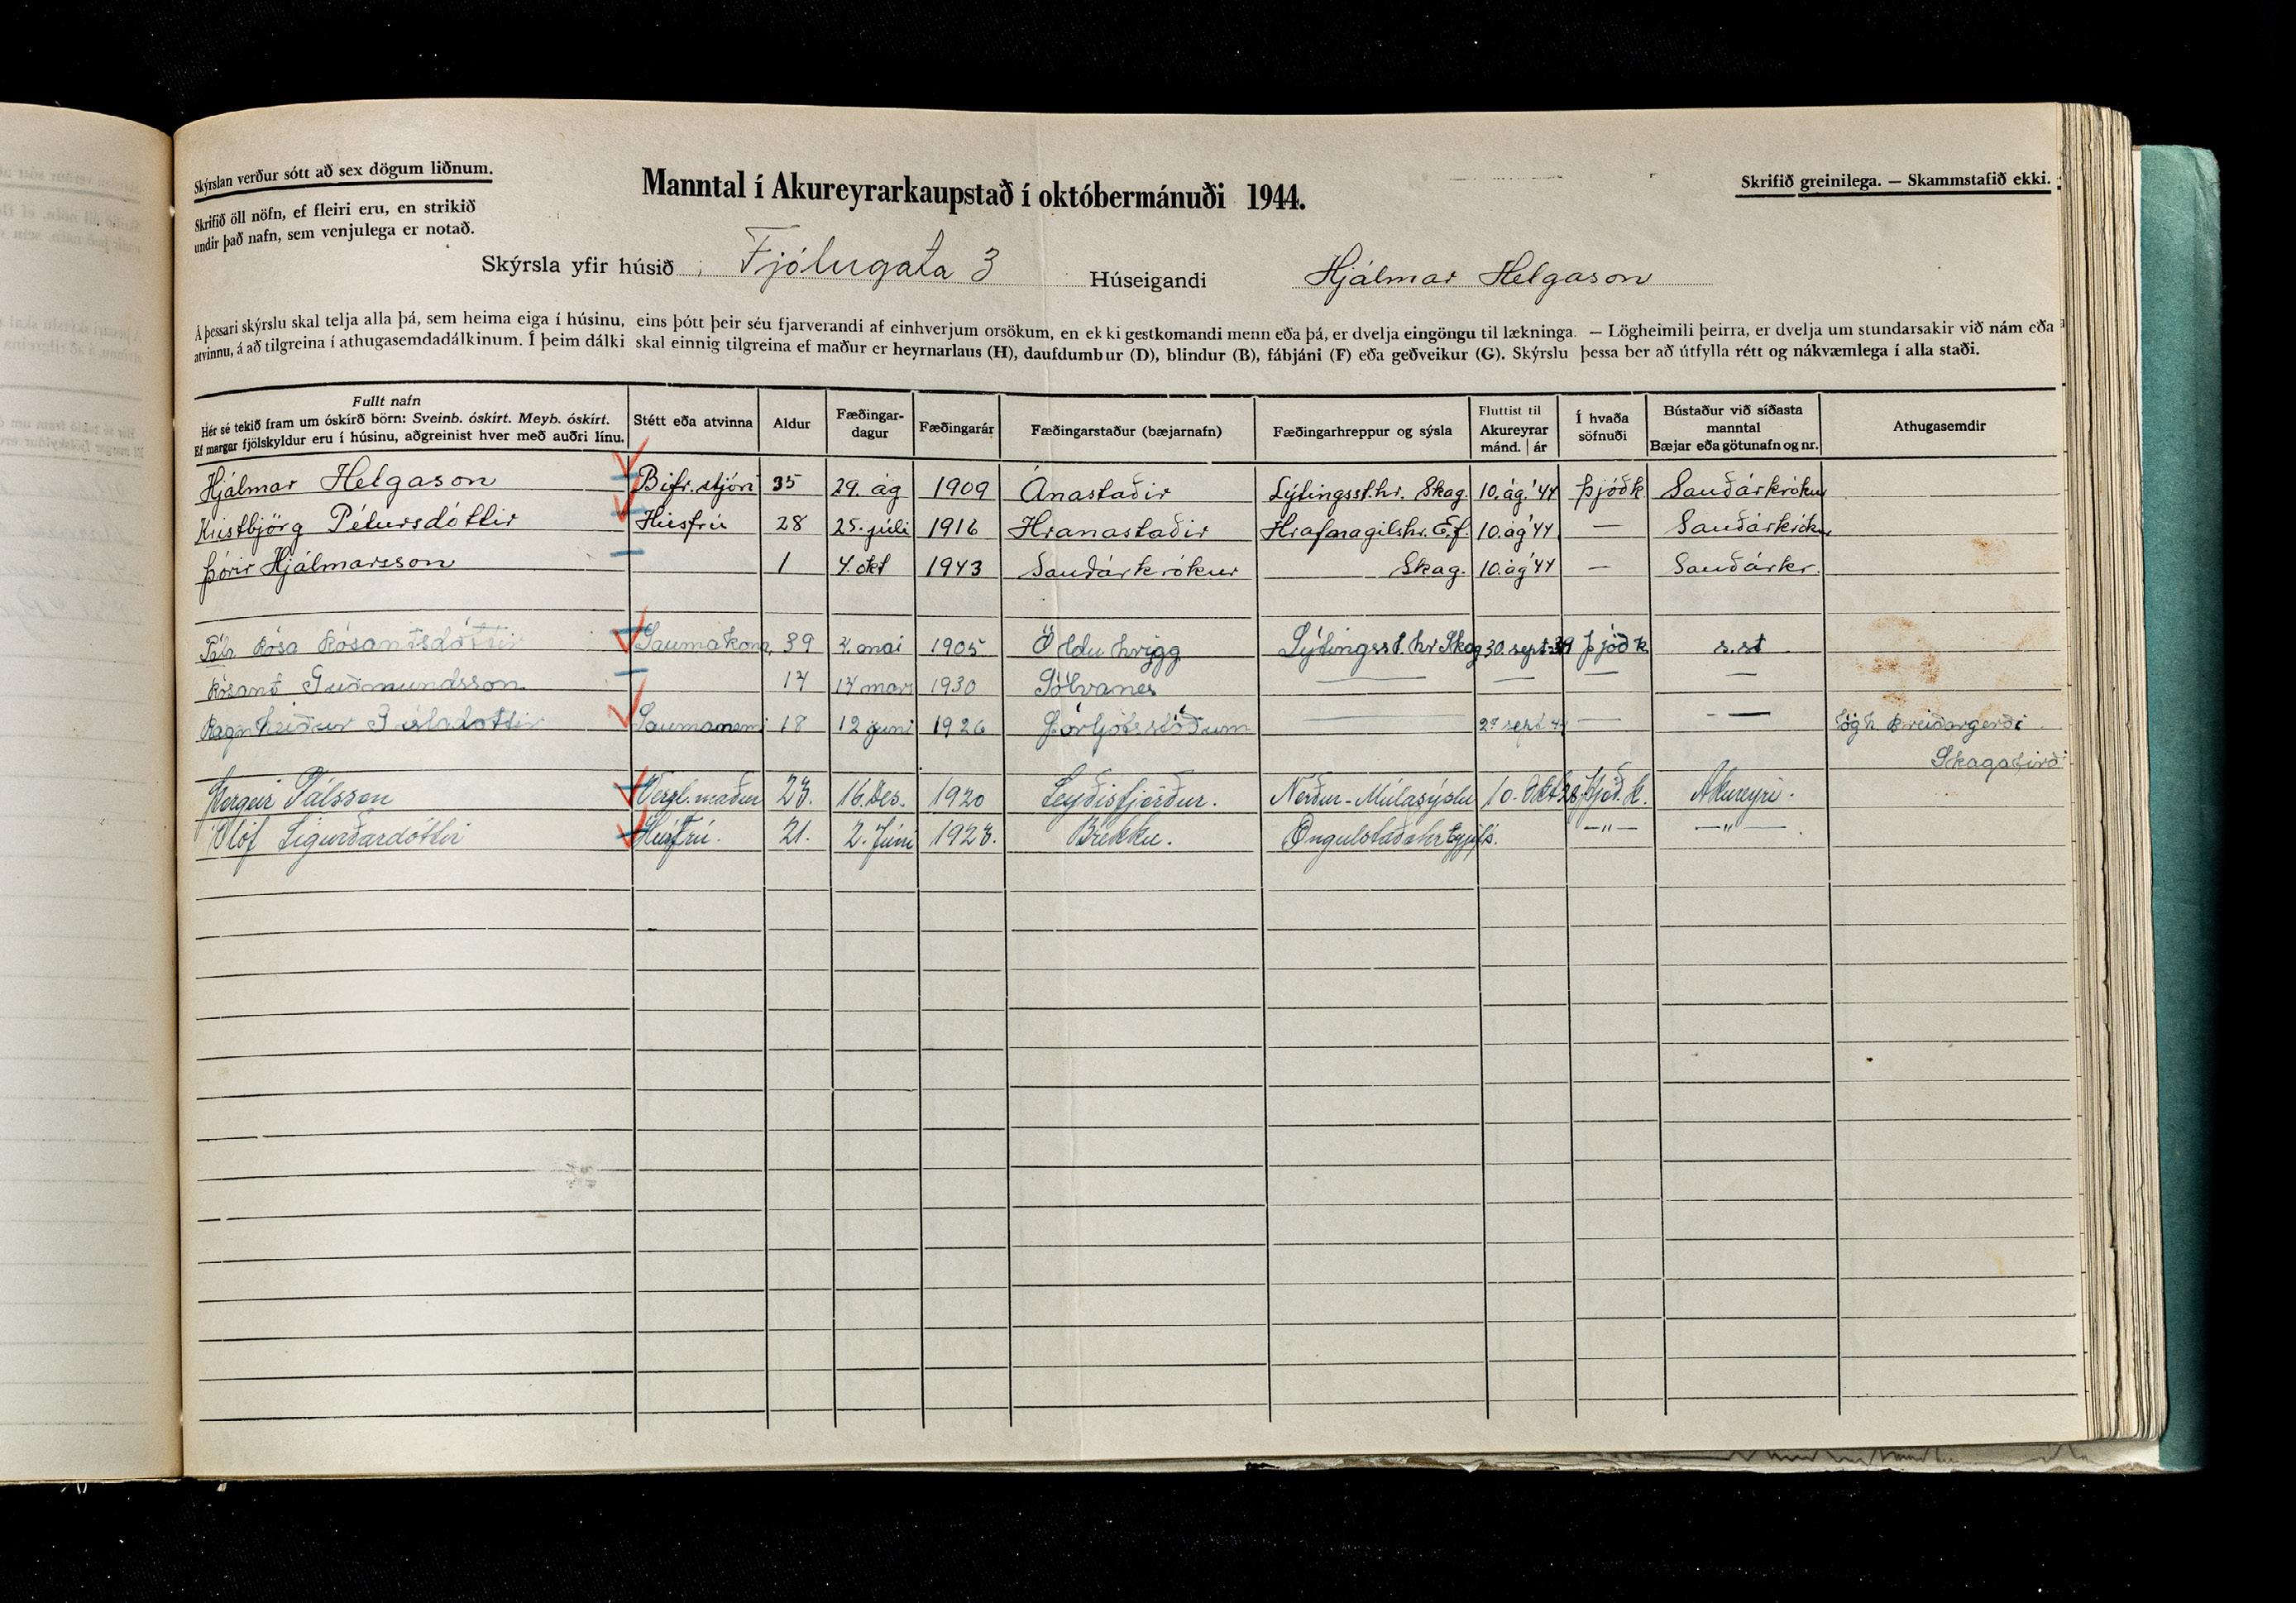 Skýrslan verður sótt að sex dögum liðnum.
Manntal í Akureyrarkaupstað í októbermánuði 1944.
Skrifið greinilega. — Skammstafið ekki.
Skrifið öll nöfn, ef fleiri eru, en strikið
undir það nafn, sem venjulega er notað.
Skýrsla yfir húsið Fjólugata 3 Húseigandi Hjálmar Helgason
Á þessari skýrslu skal telja alla þá, sem heima eiga í húsinu, eins þótt þeir séu fjarverandi af einhverjum orsökum, en ekki gestkomandi menn eða þá, er dvelja eingöngu til lækninga. — Lögheimili þeirra, er dvelja um stundarsakir við nám eða
atvinnu, á að tilgreina í athugasemdadálkinum. Í þeim dálki skal einnig tilgreina ef maður er heyrnarlaus (H), daufdumbur (D), blindur (B), fábjáni (F) eða geðveikur (G). Skýrslu þessa ber að útfylla rétt og nákvæmlega í alla staði.
Fullt nafn
Hér sé tekið fram um óskírð börn: Sveinb. óskírt. Meyb. óskírt.
Ef margar fjölskyldur eru í húsinu, aðgreinist hver með auðri línu.
Stétt eða atvinna
Aldur
Fæðingar-
dagur
Fæðingarár
Fæðingarstaður (bæjarnafn)
Fæðingarhreppur og sýsla
Fluttist til
Akureyrar
mánd. ár
Í hvaða
söfnuði
Bústaður við síðasta
manntal
Bæjar eða götunafn og nr.
Athugasemdir
Hjálmar Helgason Bifr.stjóri 35 29. ág 1909 Ánastaðir Lýtingsst.hr. Skag. 10. ág. '44 þjóðk Sauðárkrókur
Kristbjörg Pétursdóttir Húsfrú 28 25. júlí 1916 Hranastaðir Hrafnagilshr. Ef. 10. ág '44 — Sauðárkrókur
Þórir Hjálmarsson 1 4. okt 1943 Sauðárkrókur Skag. 10. ág '44 — Sauðárkr.
Rósa Rósantsdóttir Saumakona 39 maí 1905 Ölduhrygg Lýtingsst. hr Skag 30. sept 39 þjóðk s.st
Rósant Guðmundsson 14 mars 1930 Sölvanes — — — —
Ragnheiður Gísladóttir Saumanemi 18 12 júní 1926 Þorljótsstöðum — sept 44 — — lögh. Breiðargerði
Skagafirði
Þorgeir Pálsson Verzl.maður 23. 16. Des. 1920 Seyðisfjörður. Norður-Múlasýslu 10. Okt 28 Þjóð.k. Akureyri.
Ólöf Sigurðardóttir Húsfrú. 21. 2. Júní 1923. Brekku. Öngulstaðahr Eyjafs. —"— —"—